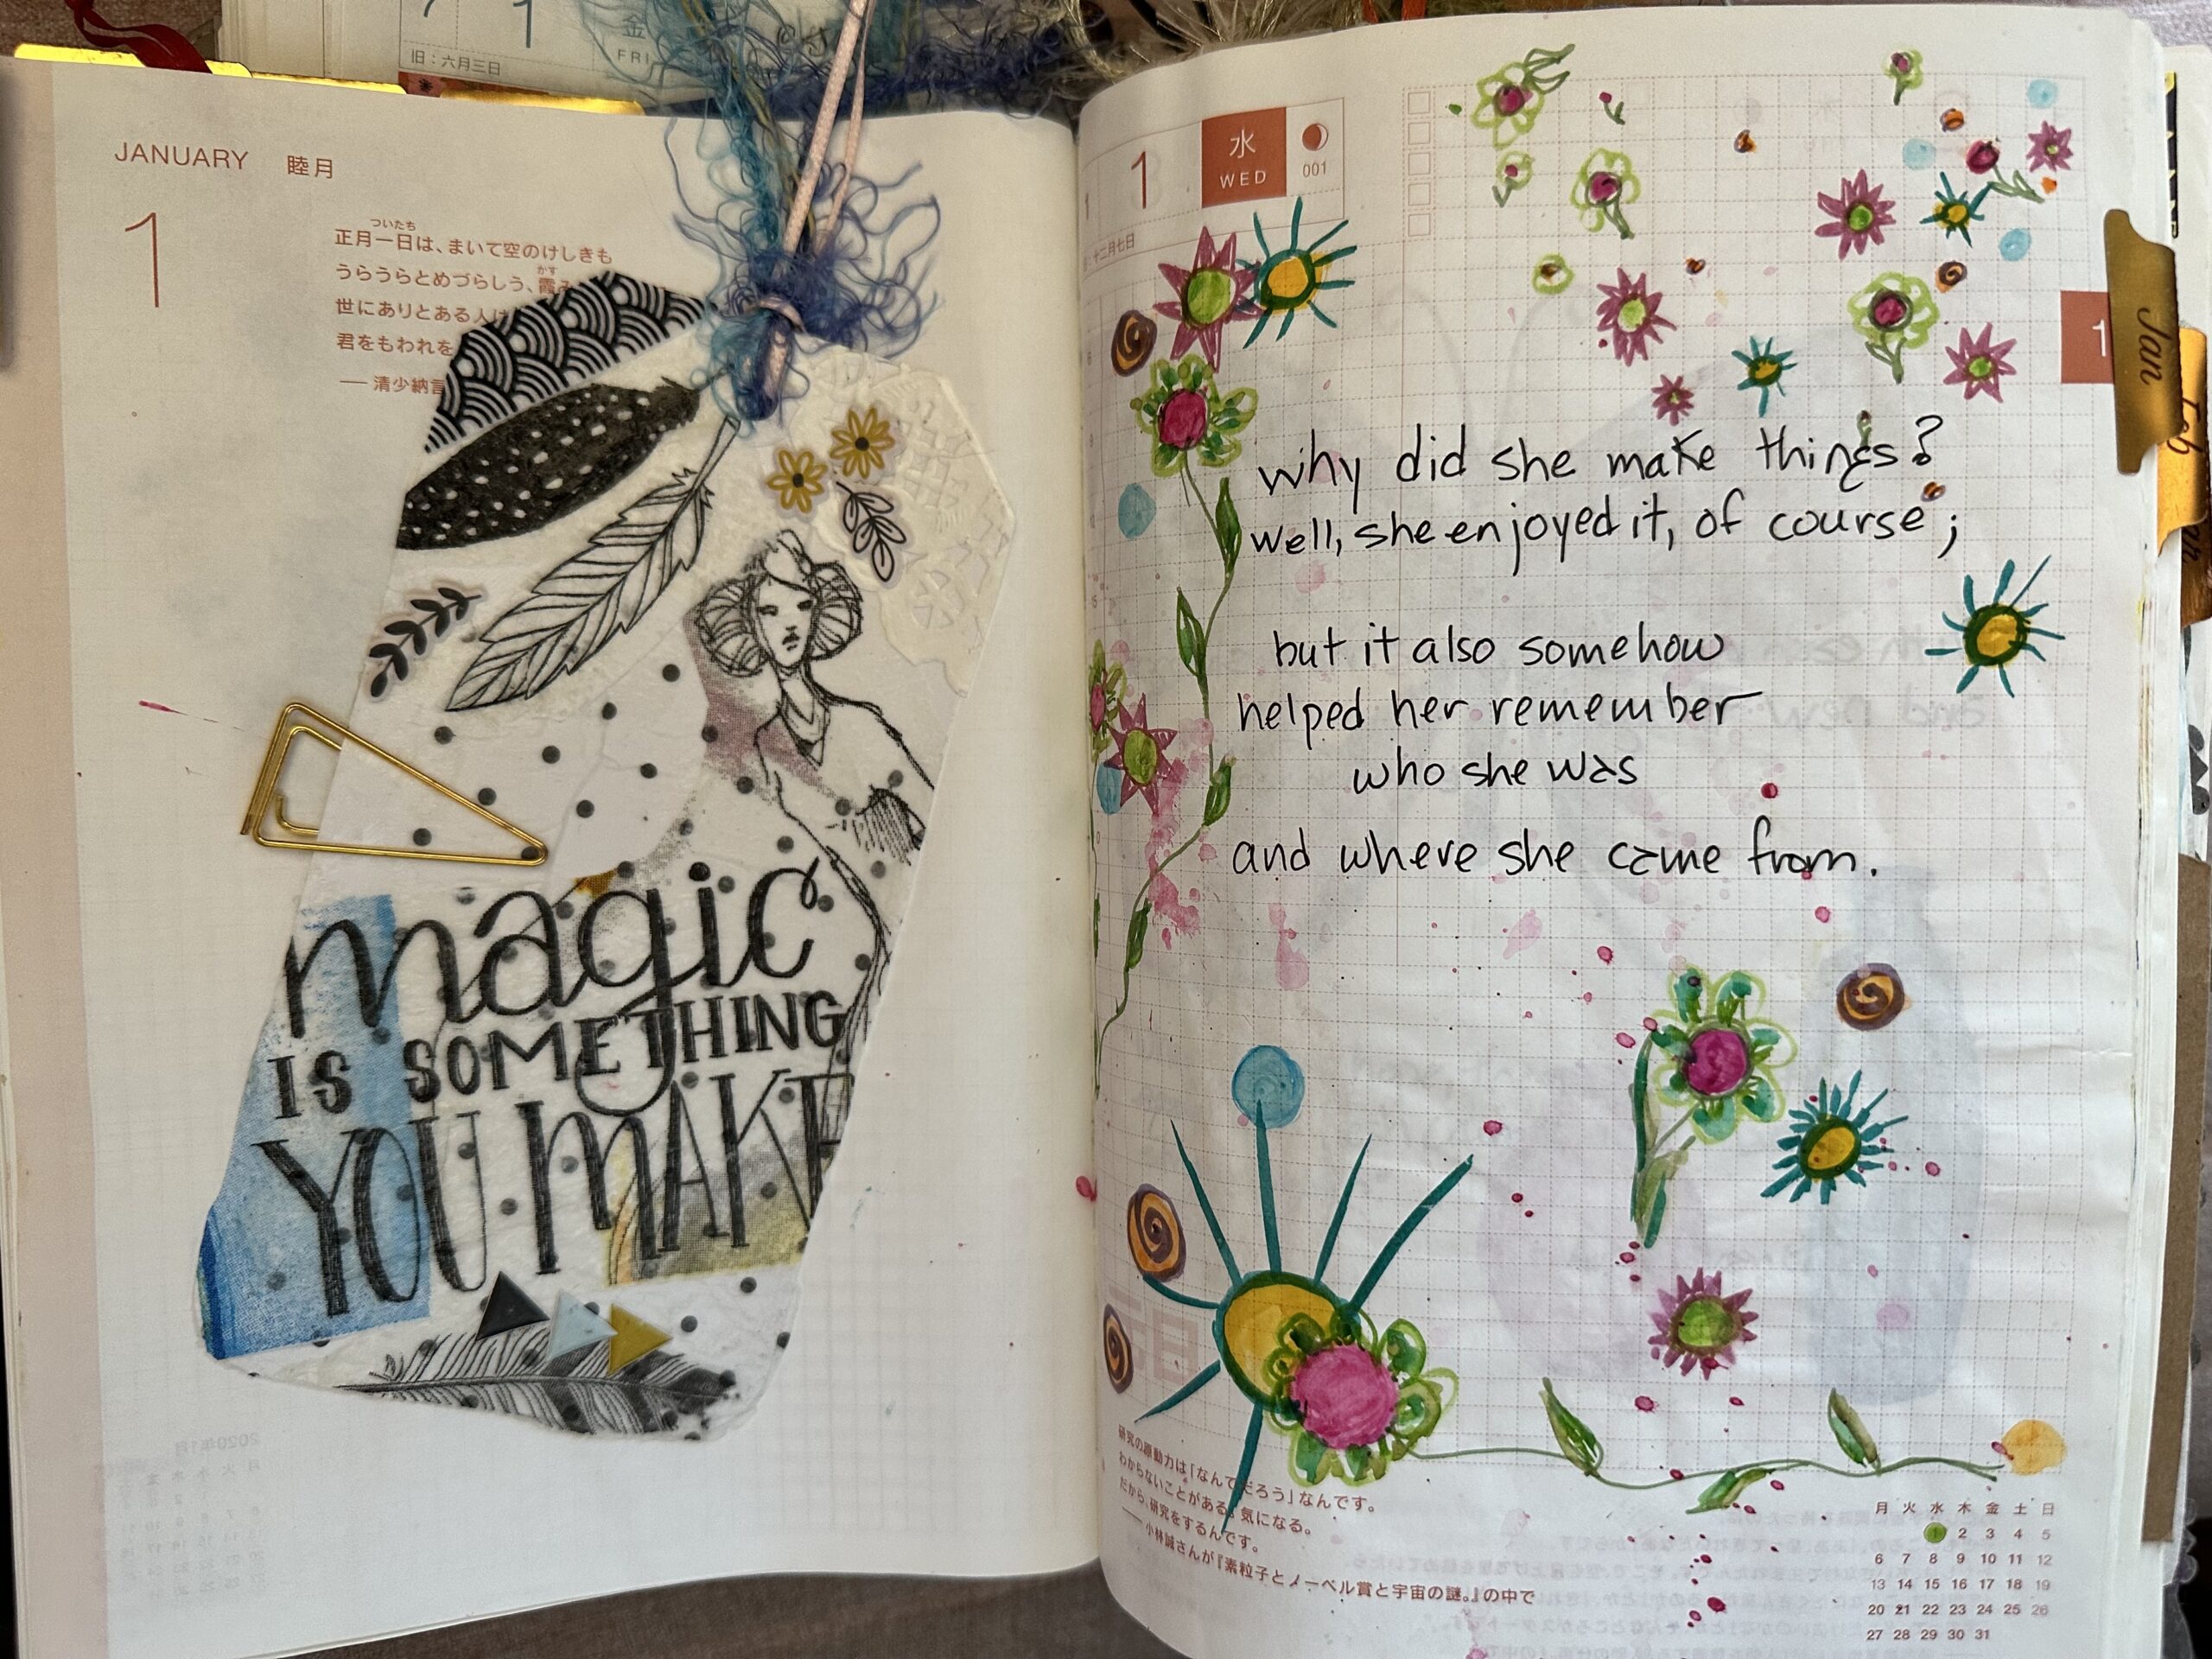 1
金
FRI
旧：六月三日
JANUARY 睦月
1
ついたち
正月一日は、まいて空のけしきも
かす
うらうらとめづらしう、霞み
世にありとある人は
君をもわれを
── 清少納言
magic
IS SOMETHING
YOU MAKE
1
水
WED
001
十二月七日
1
Jan
Feb
why did she make things?
well, she enjoyed it, of course;
but it also somehow
helped her remember
who she was
and where she came from.
研究の原動力は「なんでだろう」なんです。
わからないことがある。気になる。
だから、研究をするんです。
── 小林誠さんが『素粒子とノーベル賞と宇宙の謎。』の中で
月 火 水 木 金 土 日
1 2 3 4 5
6 7 8 9 10 11 12
13 14 15 16 17 18 19
20 21 22 23 24 25 26
27 28 29 30 31